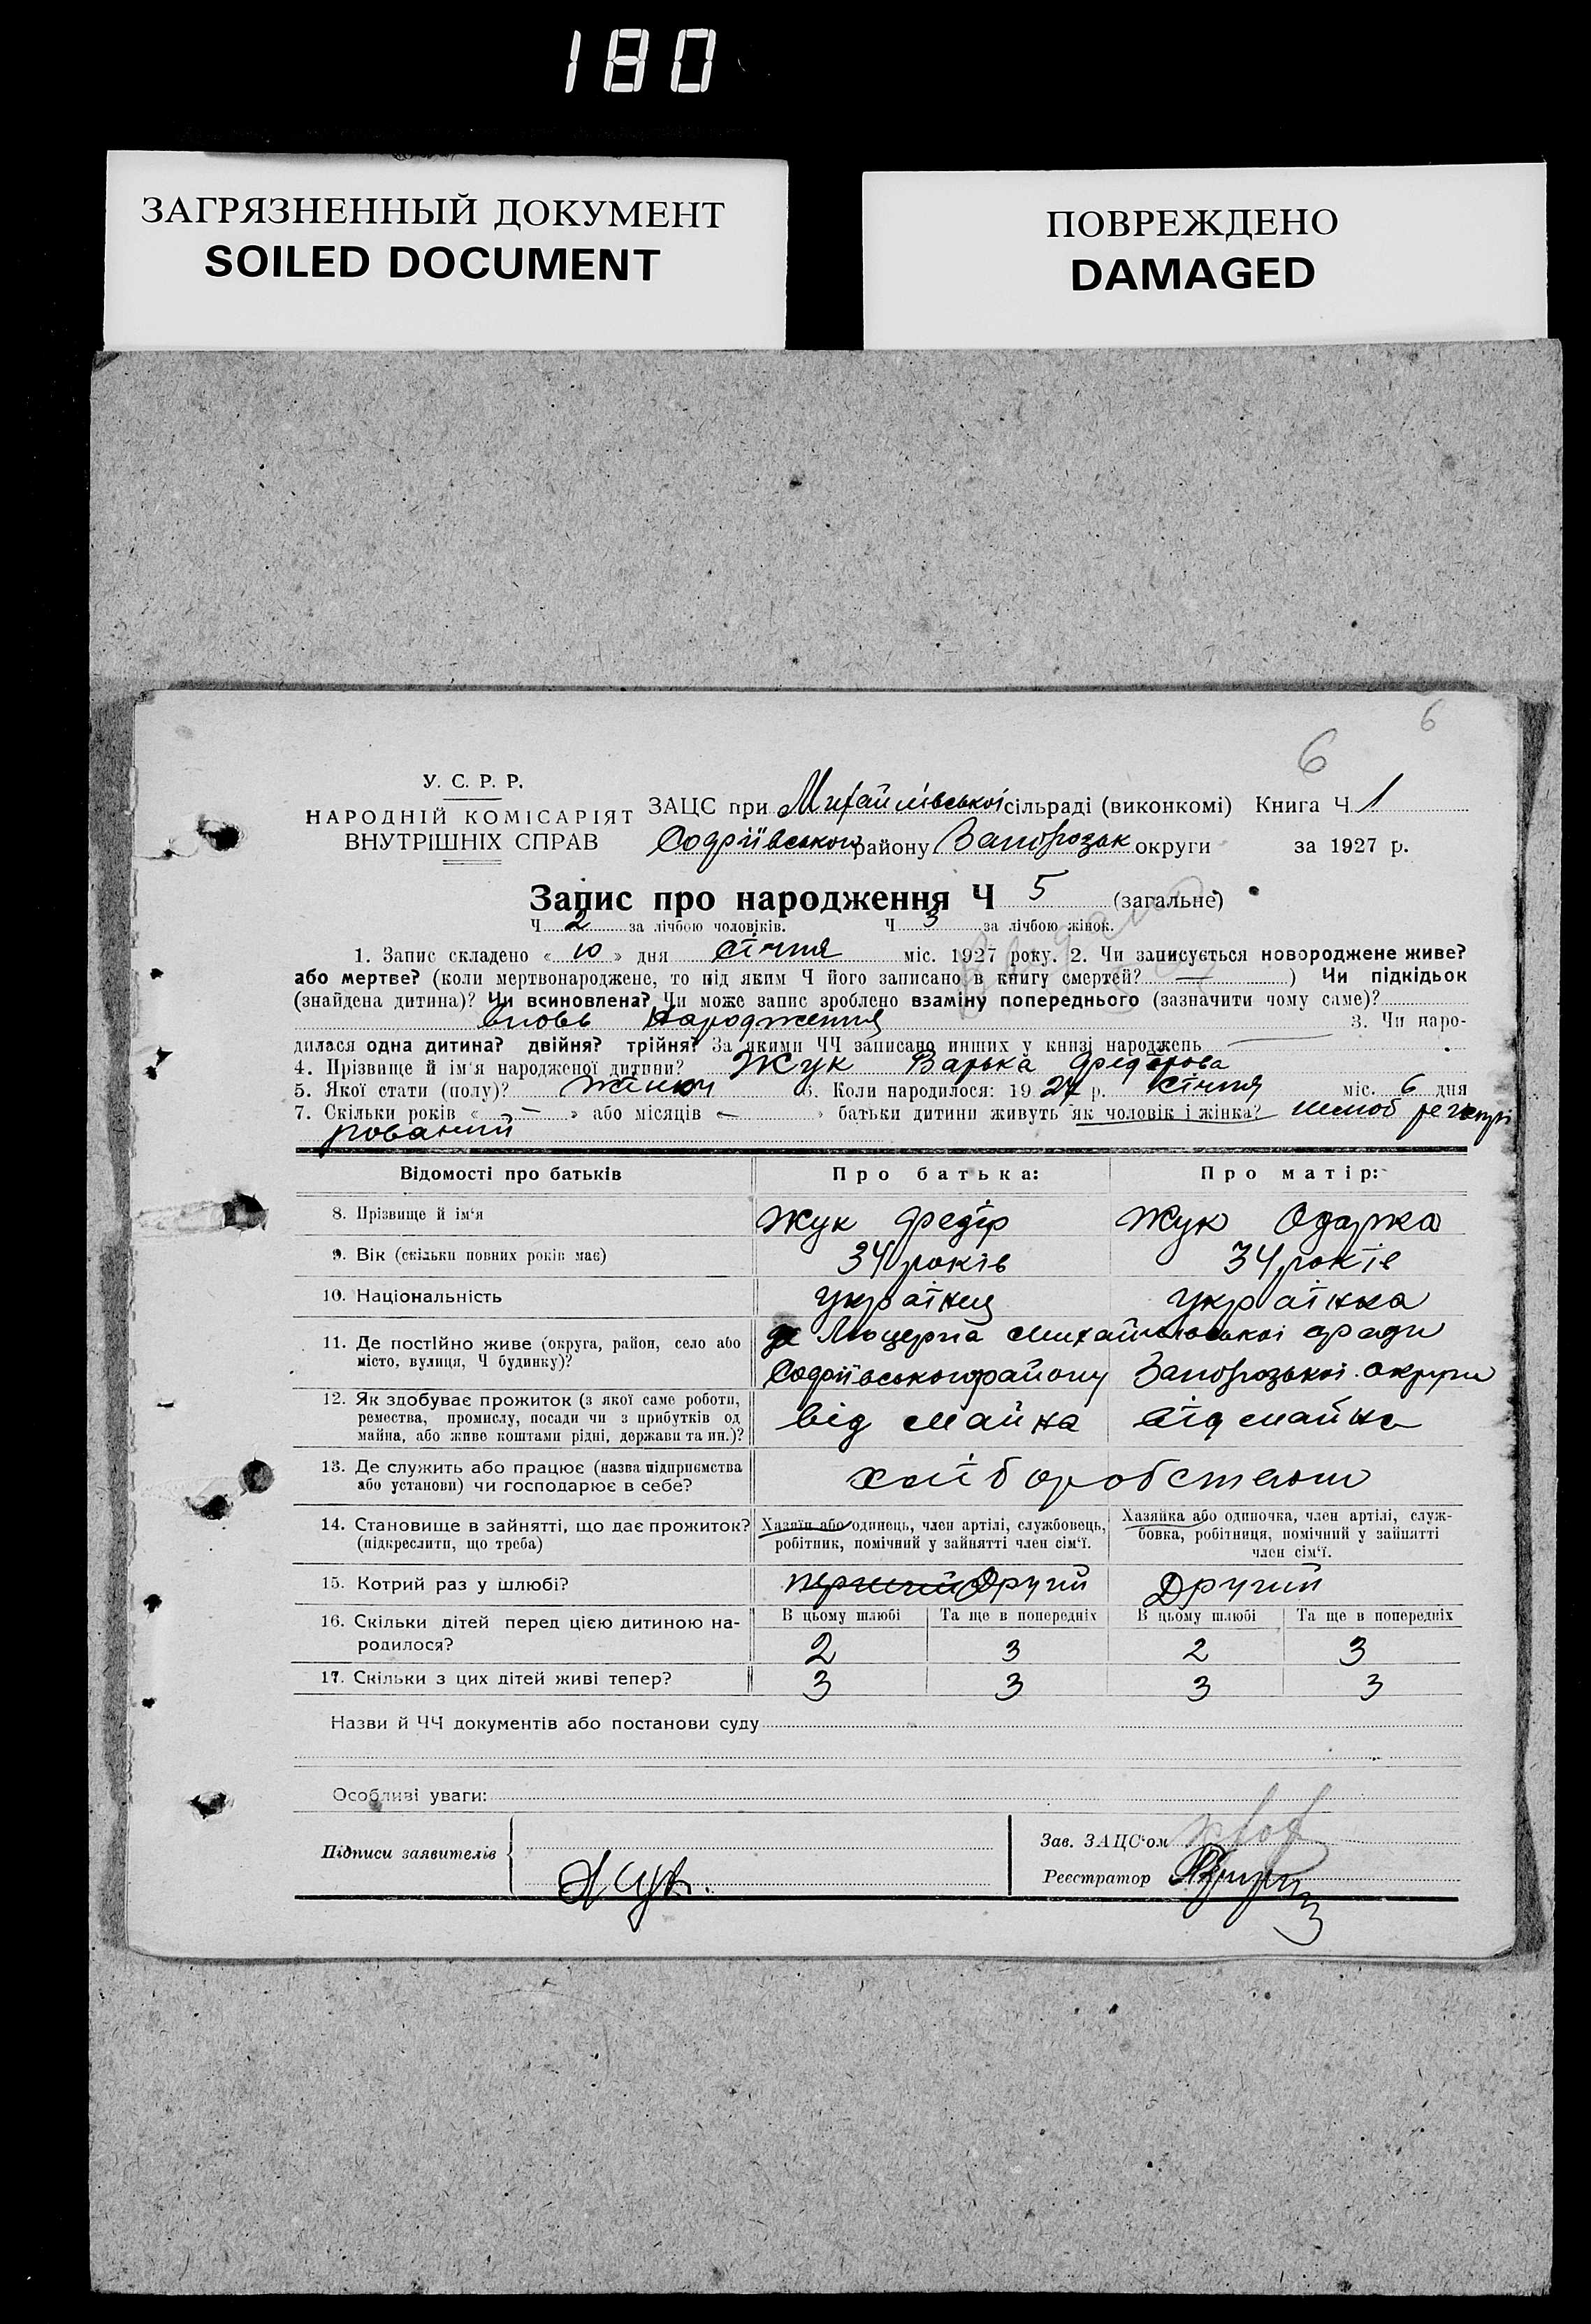 180
ЗАГРЯЗНЕННЫЙ ДОКУМЕНТ
SOILED DOCUMENT
ПОВРЕЖДЕНО
DAMAGED
6
6
У. С. Р. Р.
НАРОДНІЙ КОМІСАРІЯТ
ВНУТРІШНІХ СПРАВ
ЗАЦС при Михайлівської сільраді (виконкомі) Книга Ч 1
Софіївського району Запорозьк округи за 1927 р.
Запис про народження Ч 5 (загальне)
Ч 2 за лічбою чоловіків. Ч 3 за лічбою жінок.
1. Запис складено « 10 » дня січня міс. 1927 року. 2. Чи записується новороджене живе?
або мертве? (коли мертвонароджене, то під яким Ч його записано в книгу смертей? — ) Чи підкідьок
(знайдена дитина)? Чи всиновлена? Чи може запис зроблено взаміну попереднього (зазначити чому саме)?
вновь народження 3. Чи наро-
дилася одна дитина? двійня? трійня? За якими ЧЧ записано инших у книзі народжень
4. Прізвище й ім'я народженої дитини? Жук Варька Федорова
5. Якої стати (полу)? жіноч 6. Коли народилося: 19 27 р. січня міс. 6 дня
7. Скільки років « — » або місяців « — » батьки дитини живуть як чоловік і жінка? шлюб регистрі
рований
Відомості про батьків Про батька: Про матір:
8. Прізвище й ім'я Жук Федір Жук Одарка
9. Вік (скільки повних років має) 34 років 34 років
10. Національність українец українка
11. Де постійно живе (округа, район, село або
місто, вулиця, Ч будинку)?
Люцерна Михайлівської сради
Софіївського району Запорозької округи
12. Як здобуває прожиток (з якої саме роботи,
ремества, промислу, посади чи з прибутків од
майна, або живе коштами рідні, держави та ин.)?
від майна від майна
13. Де служить або працює (назва підприємства
або установи) чи господарює в себе?
хліборобством
14. Становище в зайнятті, що дає прожиток?
(підкреслити, що треба)
Хазяїн або одинець, член артілі, службовець,
робітник, помічний у зайнятті член сім'ї.
Хазяйка або одиночка, член артілі, служ-
бовка, робітниця, помічний у зайнятті
член сім'ї.
15. Котрий раз у шлюбі? перший Другий Другий
16. Скільки дітей перед цією дитиною на-
родилося?
В цьому шлюбі Та ще в попередніх В цьому шлюбі Та ще в попередніх
2 3 2 3
17. Скільки з цих дітей живі тепер? 3 3 3 3
Назви й ЧЧ документів або постанови суду
Особливі уваги:
Підписи заявителів
Жук.
Зав. ЗАЦС'ом
Реєстратор